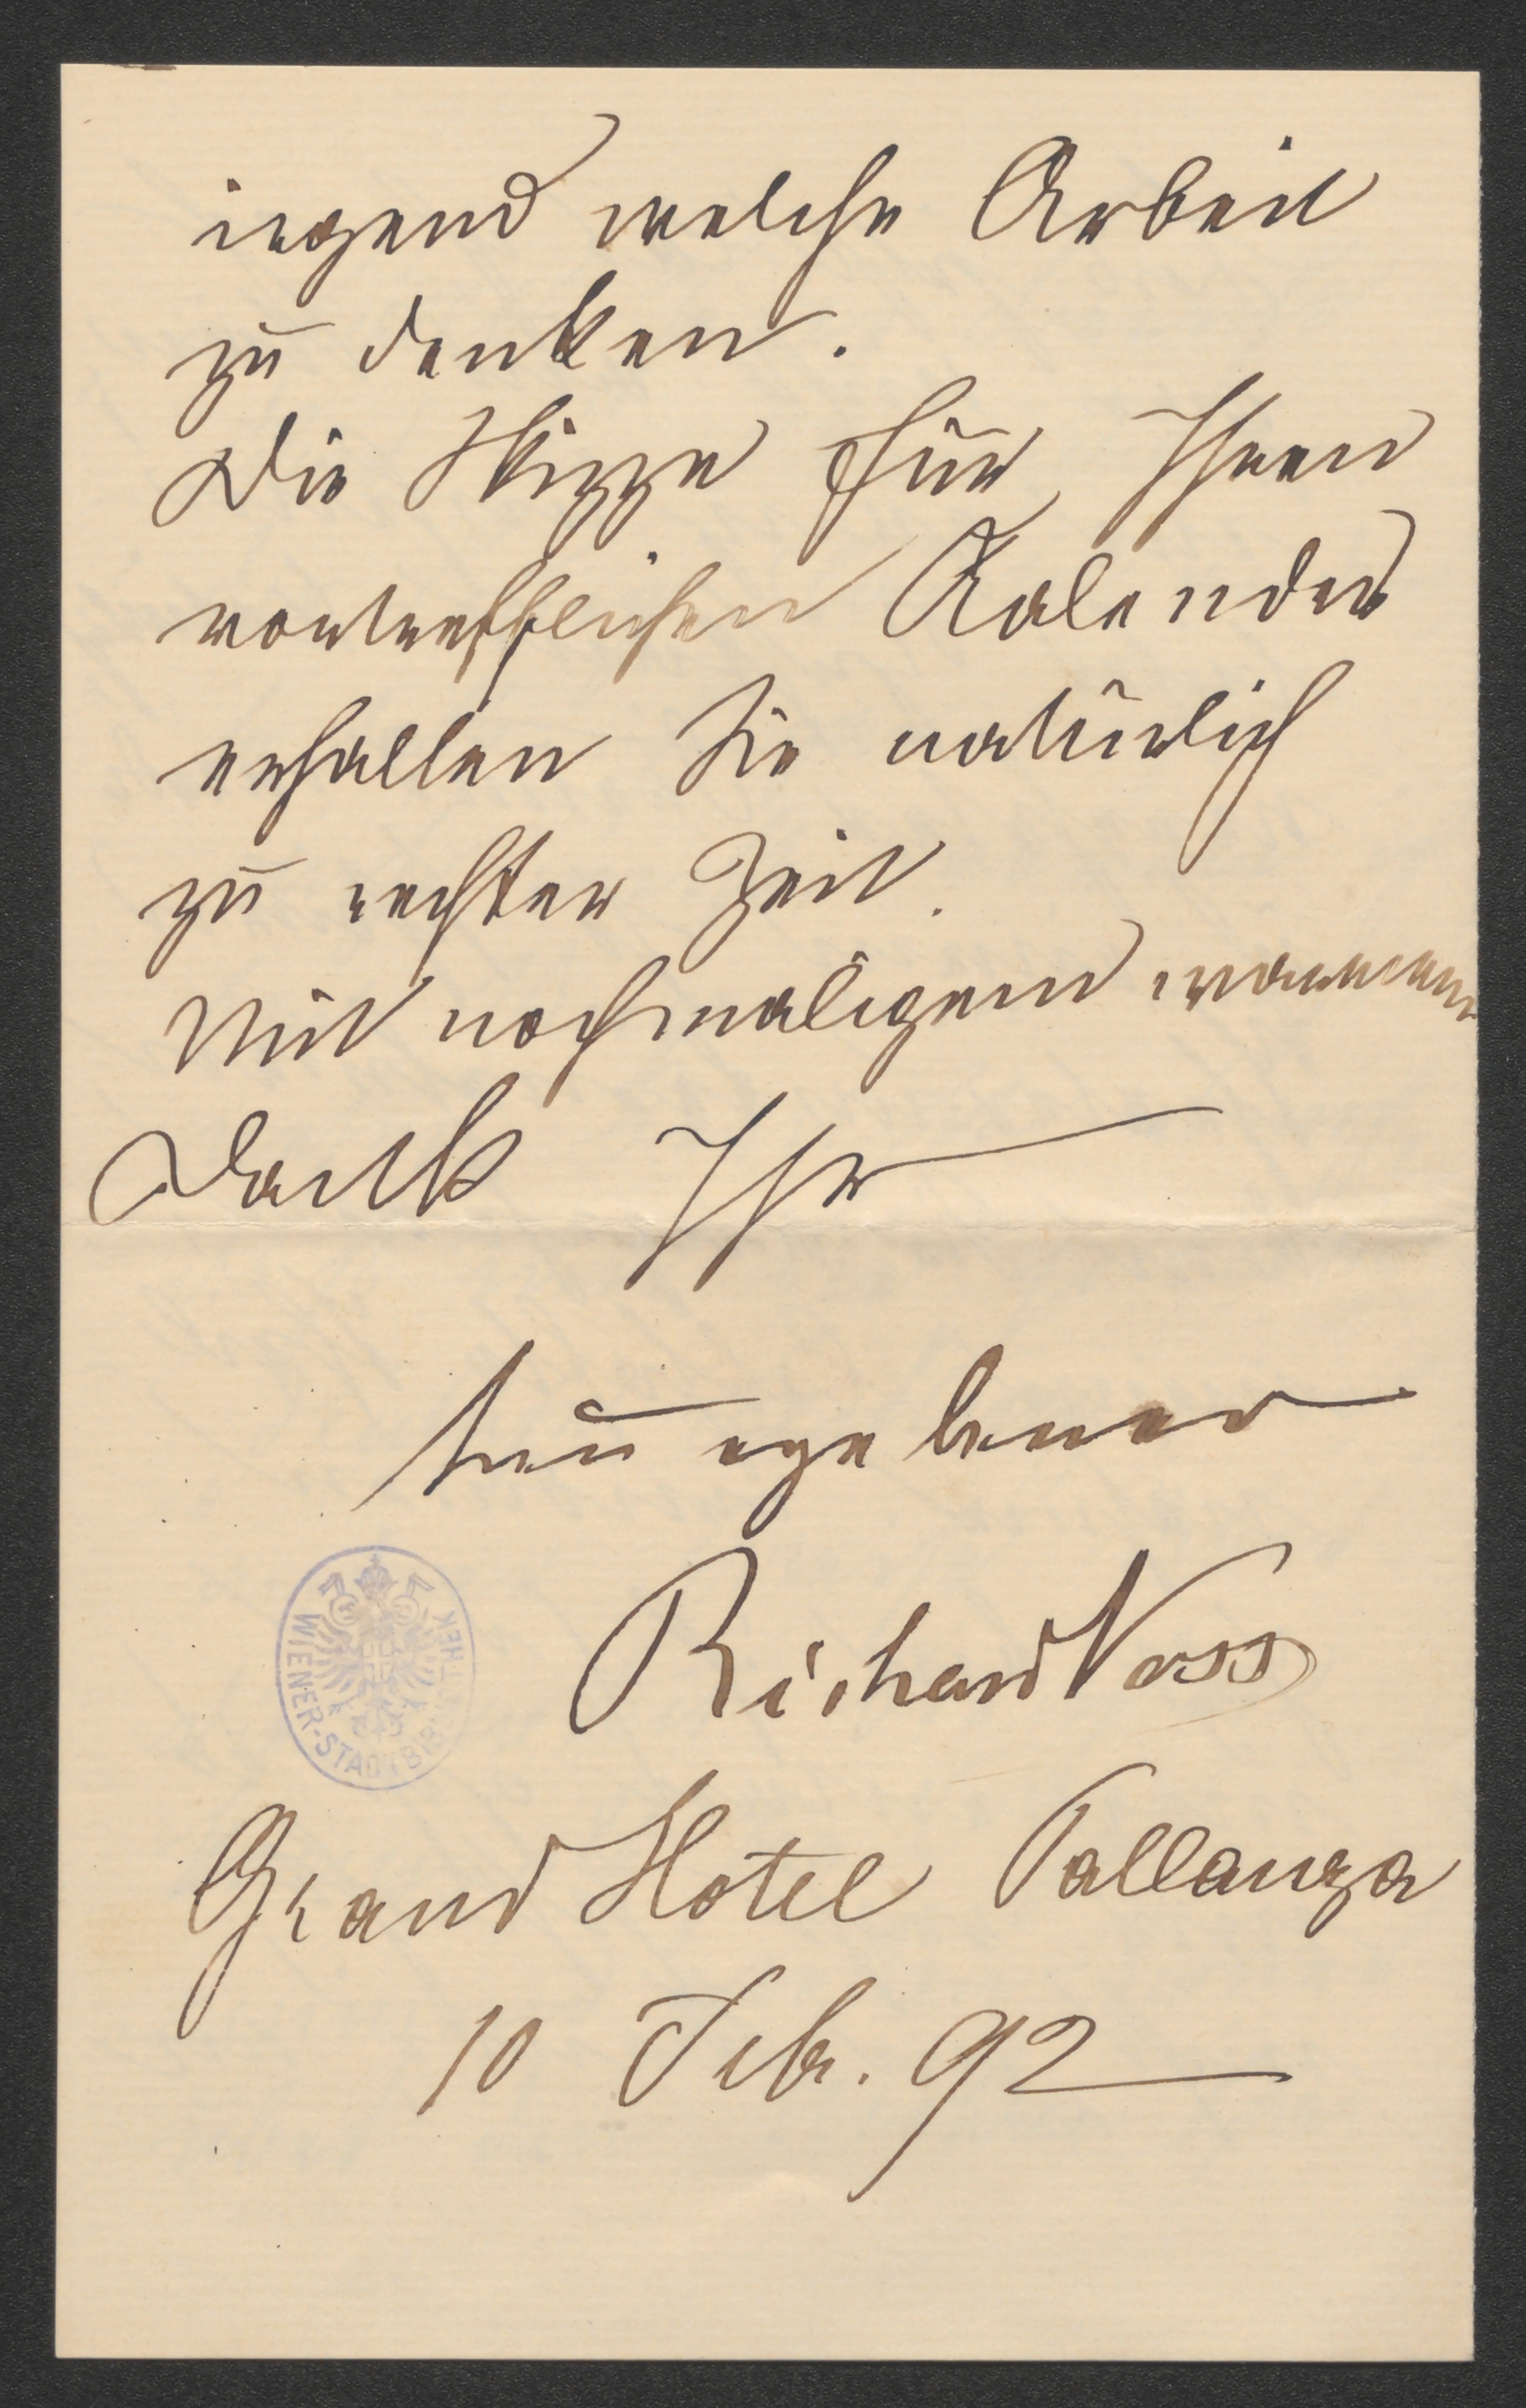 irgend welche Arbeit
zu denken.
Die Skizze für Ihren
vortrefflichen Kalender
erhalten Sie natürlich
zu rechter Zeit.
Mit nochmaligem warmem
Dank Ihr
treu ergebener
Richard Voss
WIENER-STADTBIBLIOTHEK
Grand Hotel Pallanza
10 Feb. 92